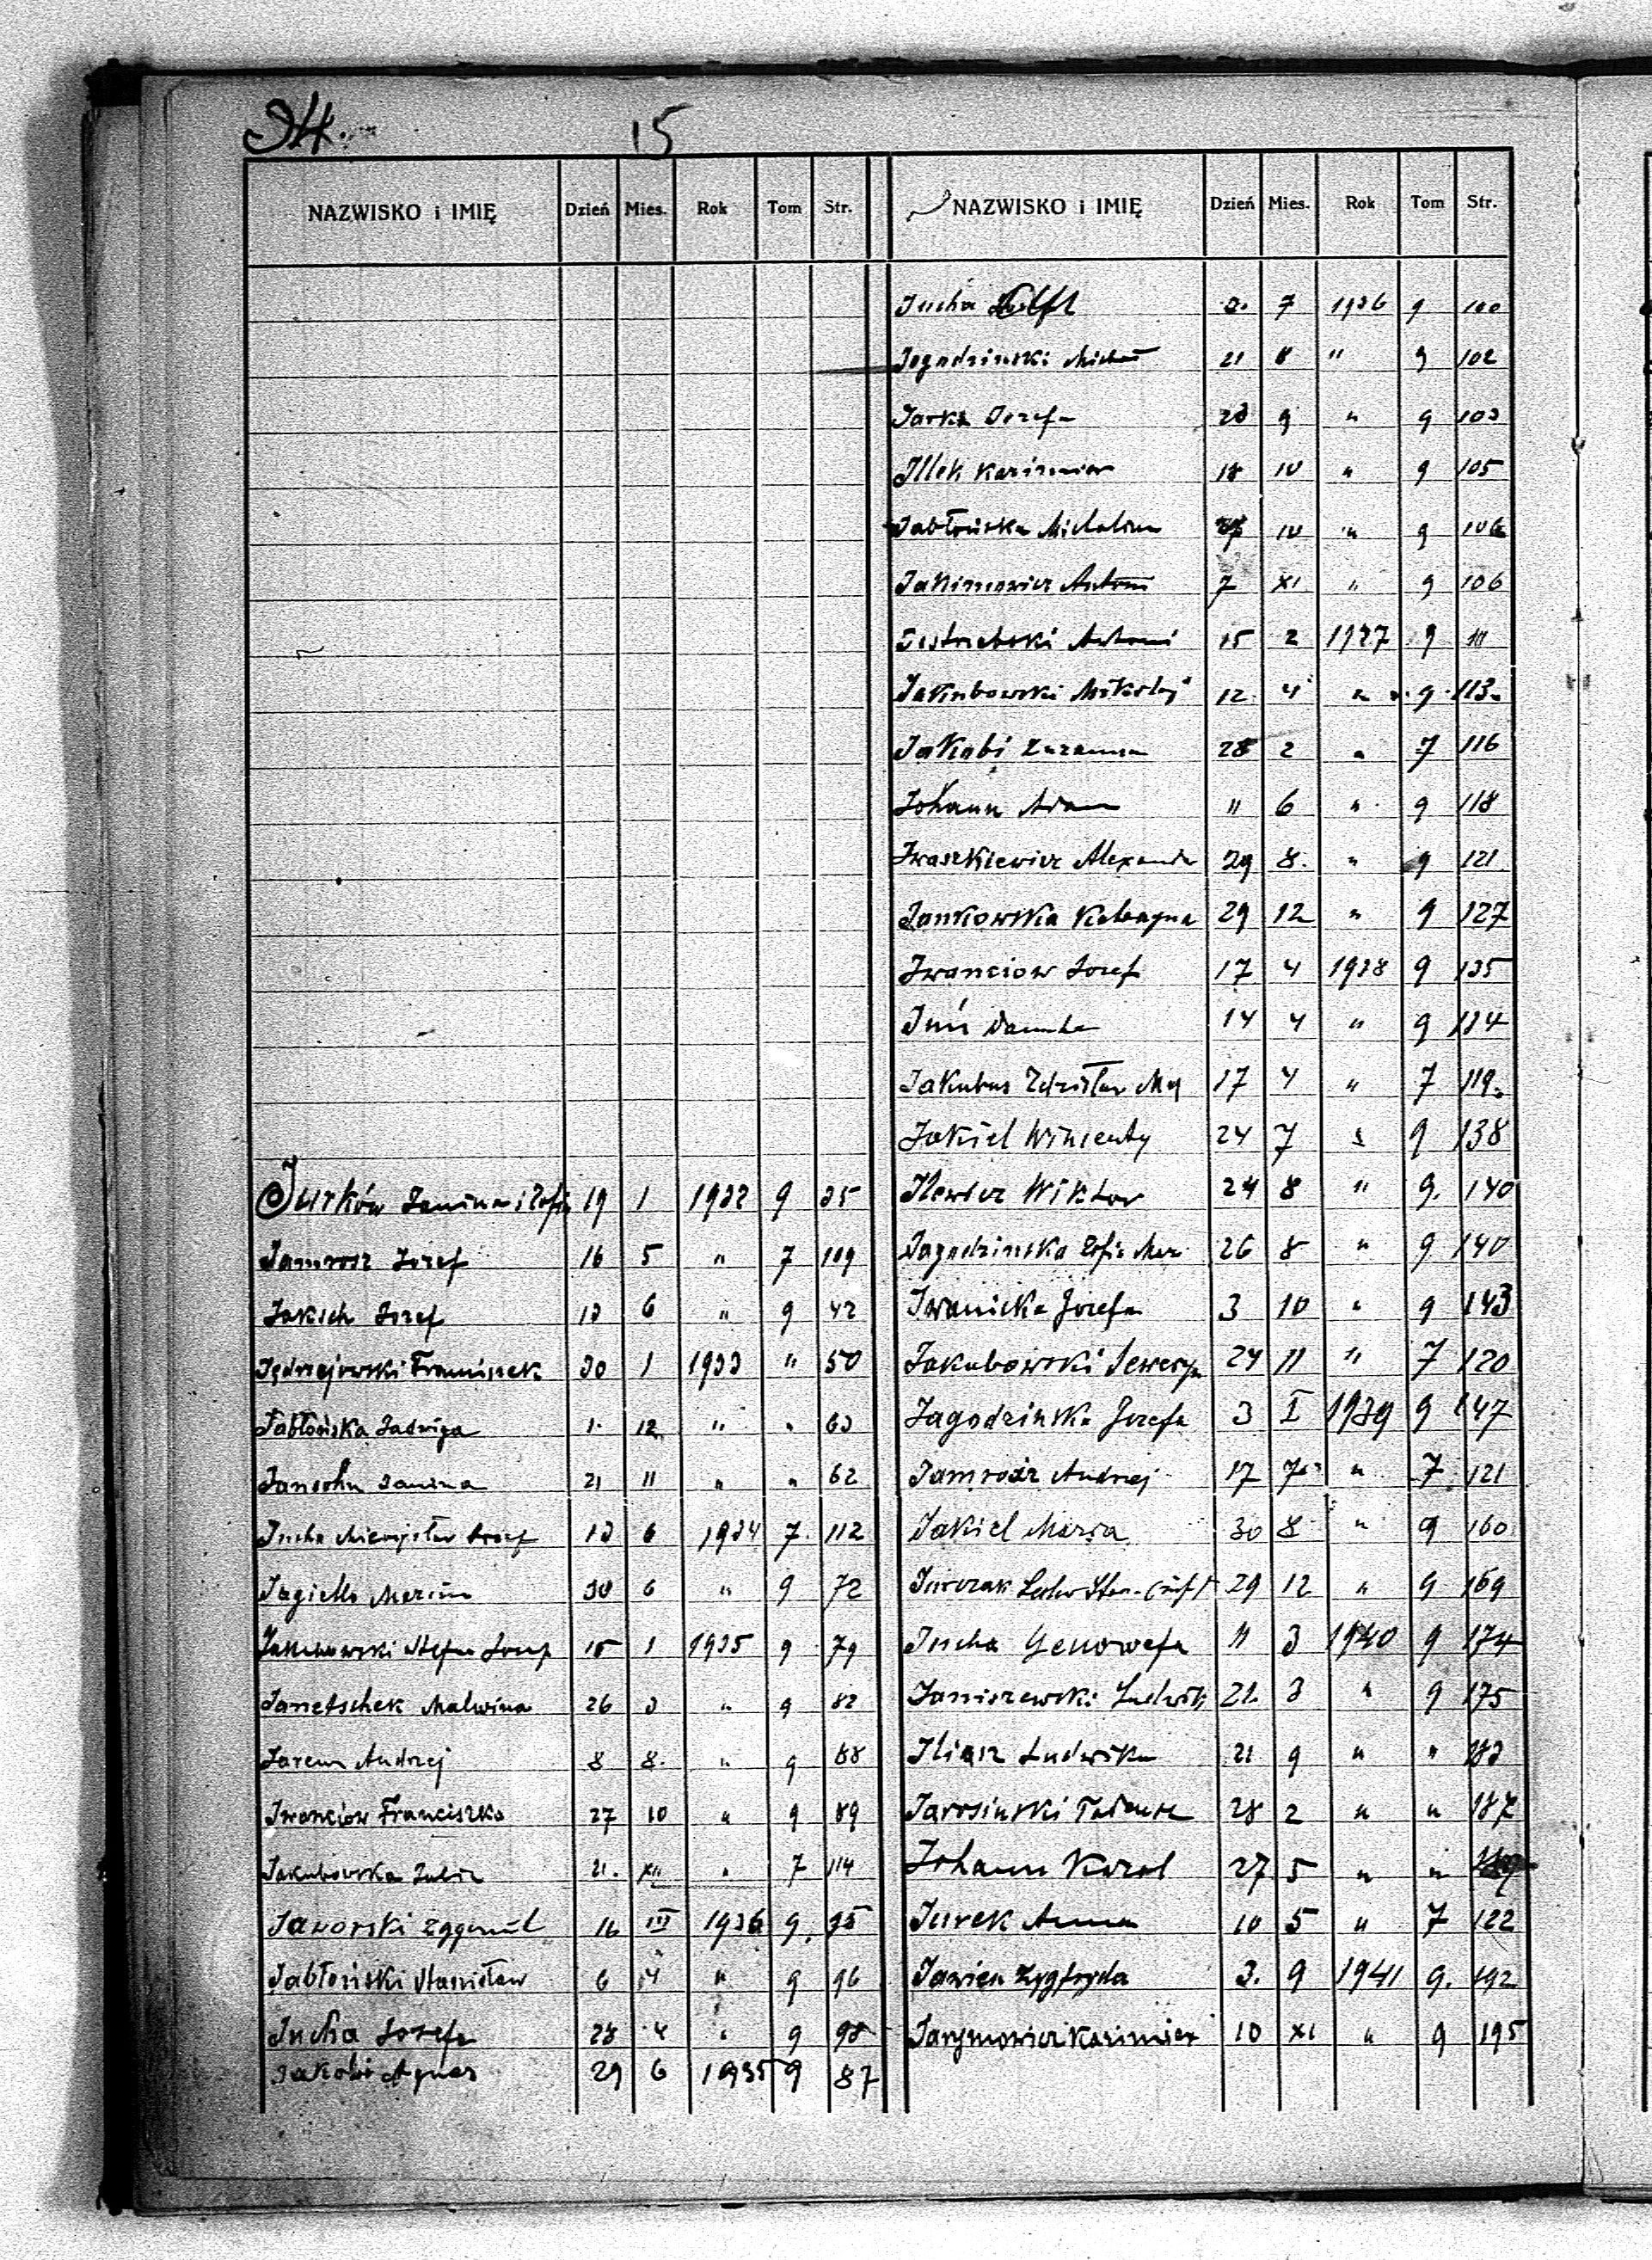 34. 15
NAZWISKO i IMIĘ Dzień Mies. Rok Tom Str.
Jurków Janina i Zofia 19 1 1932 9 35
Jamrosz Jozef 16 5 " 7 109
Jaksch Jozef 13 6 " 9 42
Jędrzejowski Franciszek 30 1 1933 " 50
Jabłońska Jadwiga 1. 12 " " 63
Jansohn Janina 21 11 " " 62
Jucha Mieczysław Jozef 13 6 1934 7. 112
Jagiełło 30 6 " 9 72
Jakubowski Stefan Jozef 15 1 1935 9 79
Janetschek Malwina 26 3 " 9 82
Jarem Andrzej 8 8. " 9 88
Iwanciów Franciszka 27 10 " 9 89
Jakubowska 21. XII " 7 114
Jaworski Zygmunt 16 III 1936 9. 95
Jabłoński Stanisław 6 4 " 9 96
Jucha Josefa 28 4 " 9 98
Jakobi Agnes 29 6 1935 9 87
NAZWISKO i IMIĘ Dzień Mies. Rok Tom Str.
Jucha 2. 7 1936 9 100
Jagodzinski Michał 21 8 " 9 102
Jarka Jozefa 23 9 " 9 103
Illek Kazimierz 18 10 " 9 105
Jabłońska Michalina 27 10 " 9 106
Jakimowicz Antoni 7 XI " 9 106
Jastrzebski Antoni 15 2 1937 9 111
Jakubowski Mikołaj 12 4 " 9 113
Jakobi Zuzanna 28 2 " 7 116
Johann Adam " 6 " 9 118
Iwaszkiewicz Alexander 29 8. " 9 121
Jankowska Katarzyna 29 12 " 9 127
Iwanciow Jozef 17 4 1938 9 135
14 4 " 9 134
Jakubus Zdzisław 17 4 " 7 119
Jakiel Wincenty 24 7 " 9 138
Ilewicz Wiktor 24 8 " 9. 140
Jagodzinska Zofia Mar 26 8 " 9 140
Iwanicka Jozefa 3 10 " 9 143
Jakubowski Seweryn 24 11 " 7 120
Jagodzinska Jozefa 3 I 1939 9 147
Jamroź Andrzej 17 7 " 7 121
Jakiel Maria 30 8 " 9 160
Jurczak 29 12 " 9 169
Jucha Genowefa 11 3 1940 9 174
Janiszewski Ludwik 21. 3 " 9 175
Iliasz Ludwika 21 9 " " 183
Jarosinski Tadeusz 28 2 " " 187
Johann Karol 27 5 " "
Jurek Anna 10 5 " 7 122
Jawien Zygfryda 3. 9 1941 9. 192
Jarymowicz Kazimierz 10 XI " 9 195